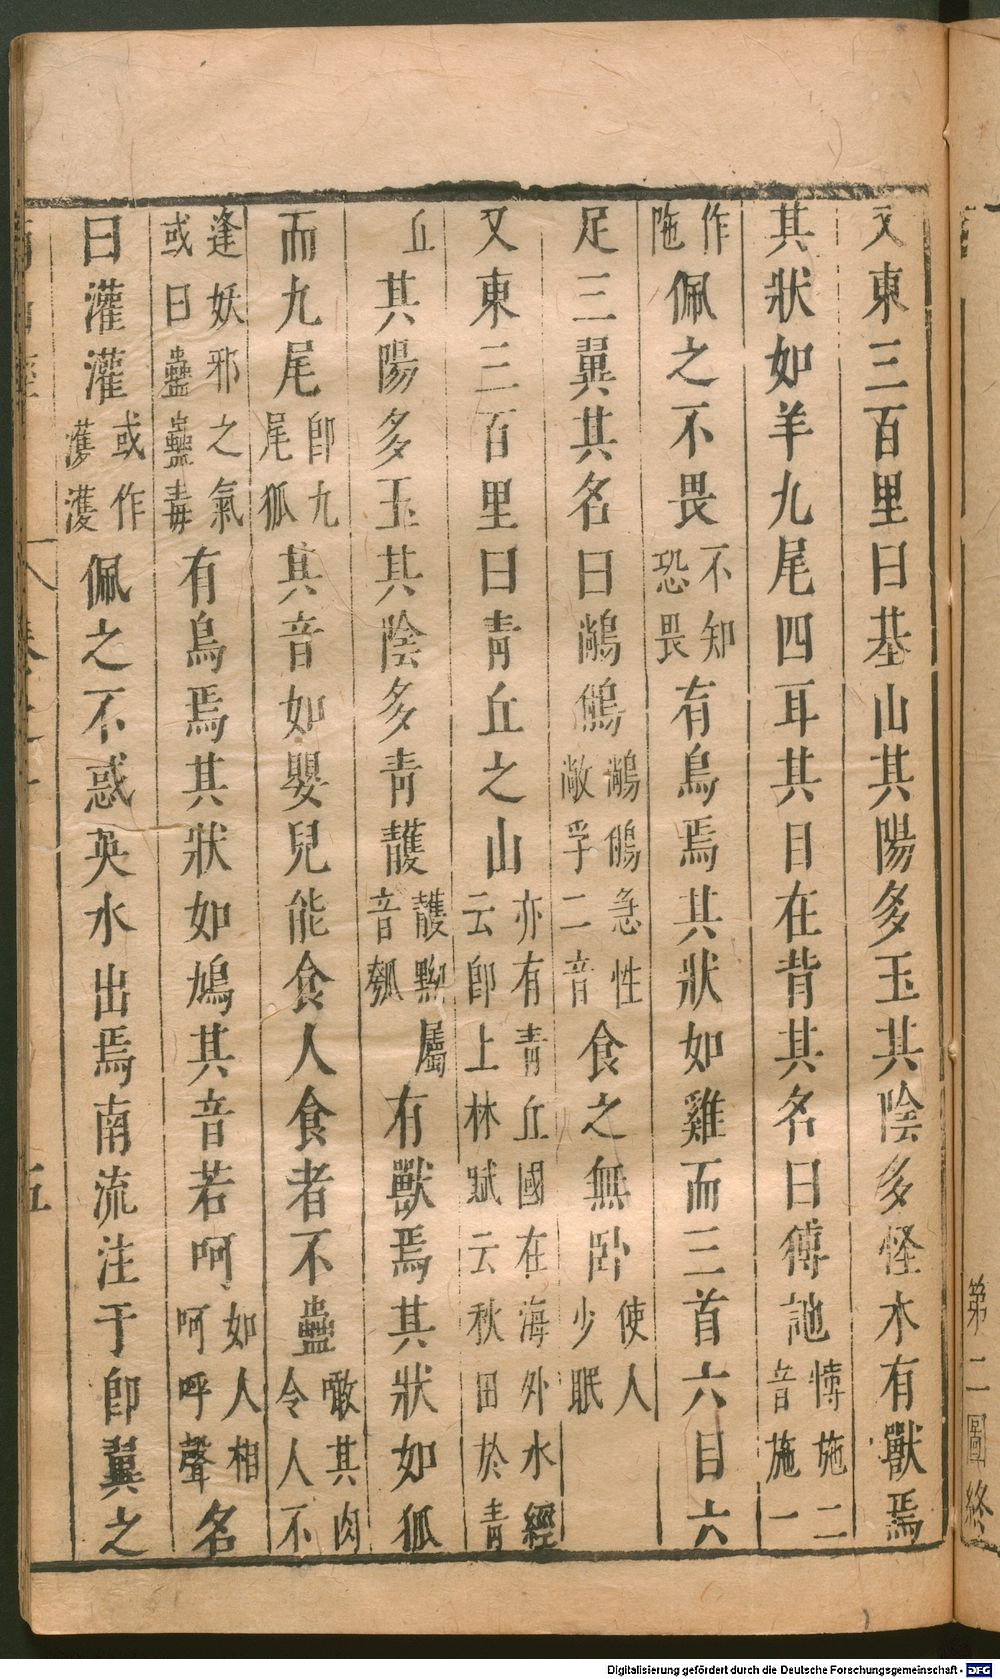 第二圖終
又東三百里曰基山其陽多玉其陰多怪木有獸焉
其狀如羊九尾四耳其目在背其名曰猼訑愽施二音施一
作陁佩之不畏不知恐畏有鳥焉其狀如雞而三首六目六
足三翼其名曰急性敞孚二音食之無臥使人少眠
又東三百里曰青丘之山亦有青丘國在海外水經云卽上林賦云秋田於青
丘其陽多玉其陰多青䨼䨼黝屬音瓠有獸焉其狀如狐
而九尾卽九尾狐其音如嬰兒能食人食者不蠱噉其肉令人不
逢妖邪之氣或曰蠱蠱毒有鳥焉其狀如鳩其音若呵如人相呵呼聲名
曰灌灌或作濩濩佩之不惑英水出焉南流注于卽翼之
五
Digitalisierung gefördert durch die Deutsche Forschungsgemeinschaft - DFG